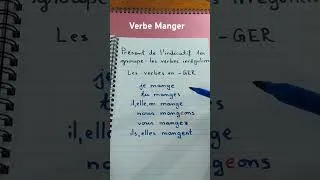 Verbe Manger
Présent de l'indicatif 1er
groupe : les verbes irréguliers
Les verbes en -GER
je mange
tu manges
il, elle, on mange
nous mangeons
vous mangez
ils, elles mangent
mangeons